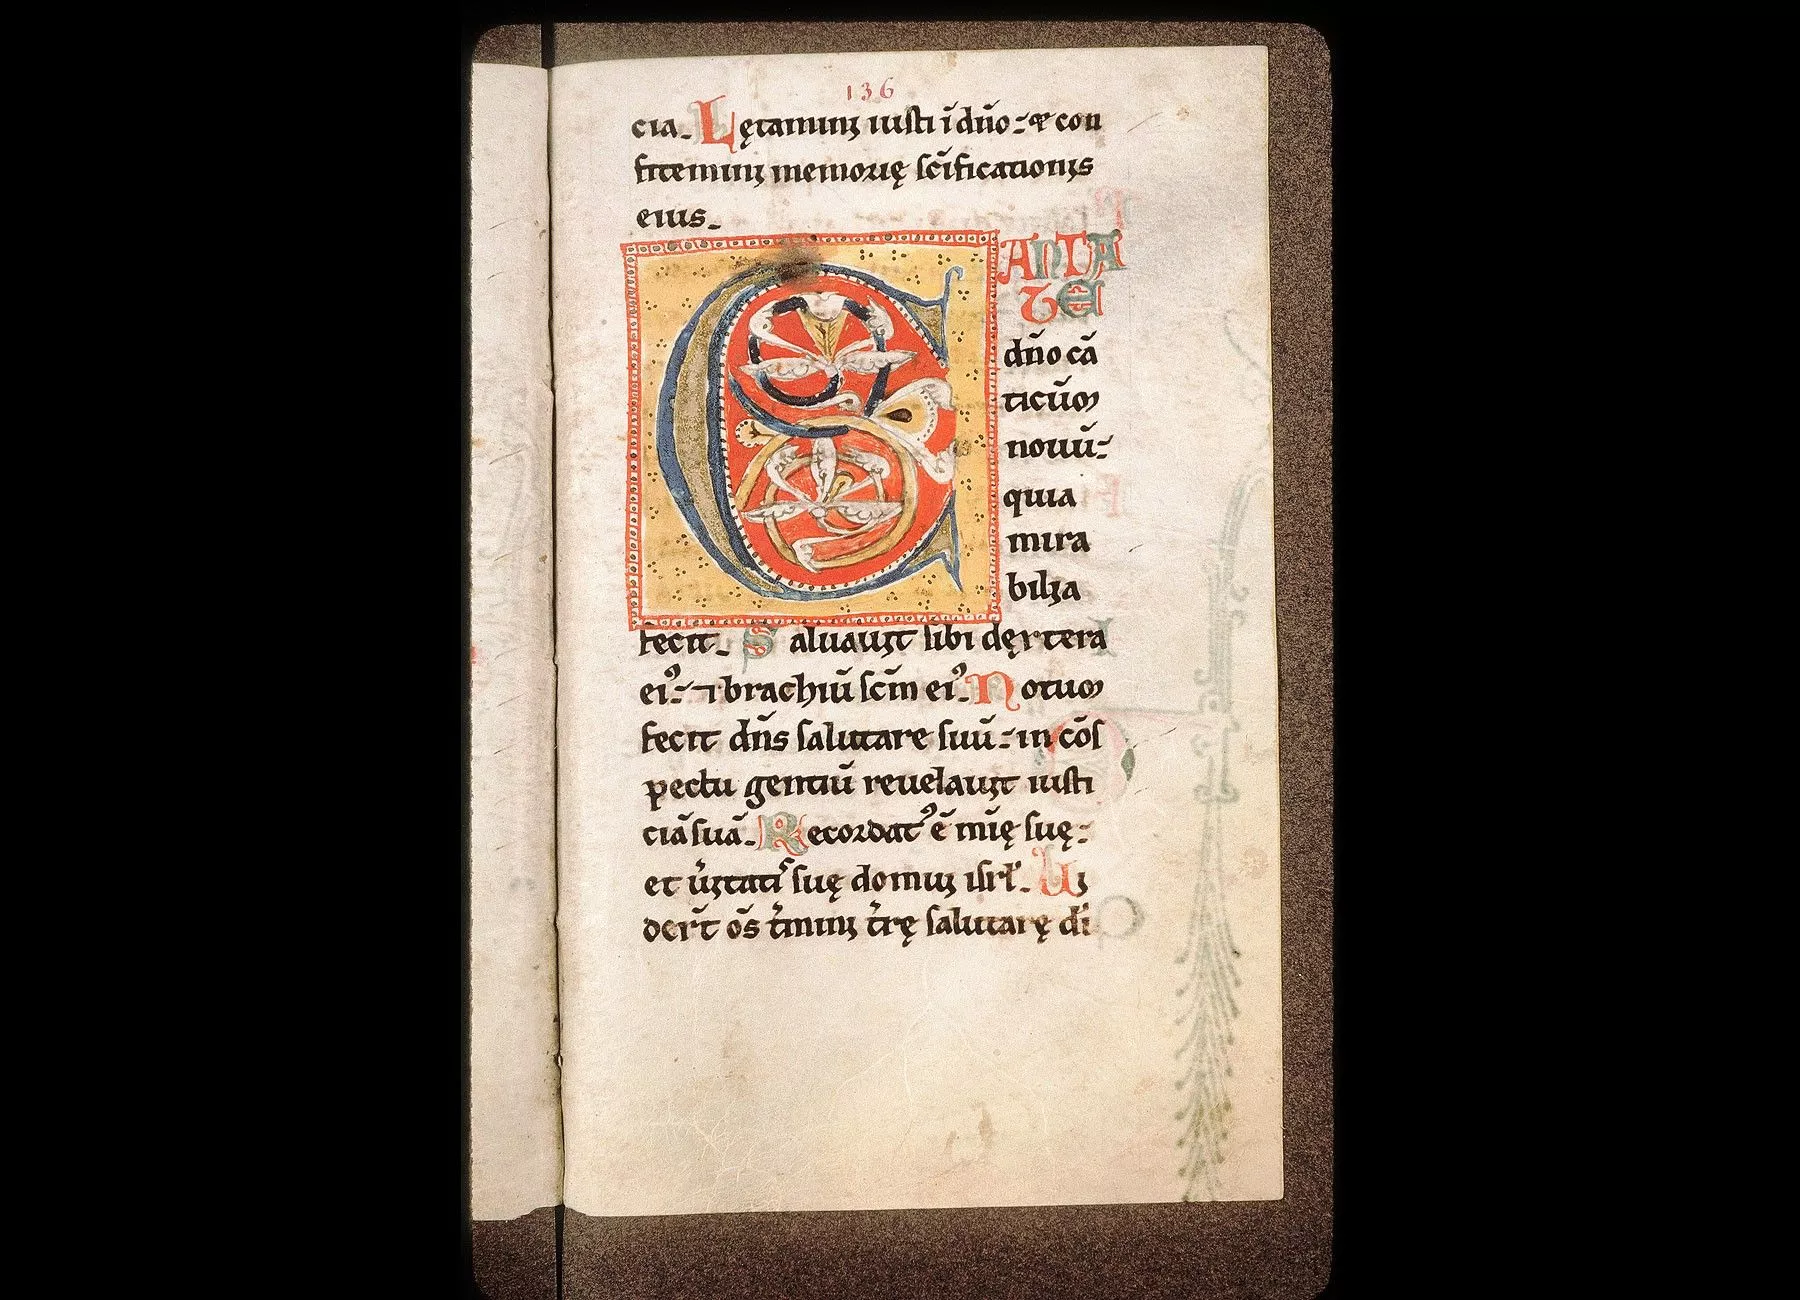 136
cia. Lętamini iusti ī dño: & con
fitemini memorię sc̄ificationis
eius.
CANTA
TE
dño cā
ticūm
nouū:
quia
mira
bilia
fecit. Saluauit sibi dęxtera
ei⁹: ⁊ brachiū scm̄ ei⁹. Notum
fecit dñs salutare suū: in cōs
pectu gentiū reuelauit iusti
ciā suā. Recordat⁹ ē mīę suę:
et ūitati suę domui isrl̄. Vi
dert̄ os̄ t̄mini t̄rę salutarę dī